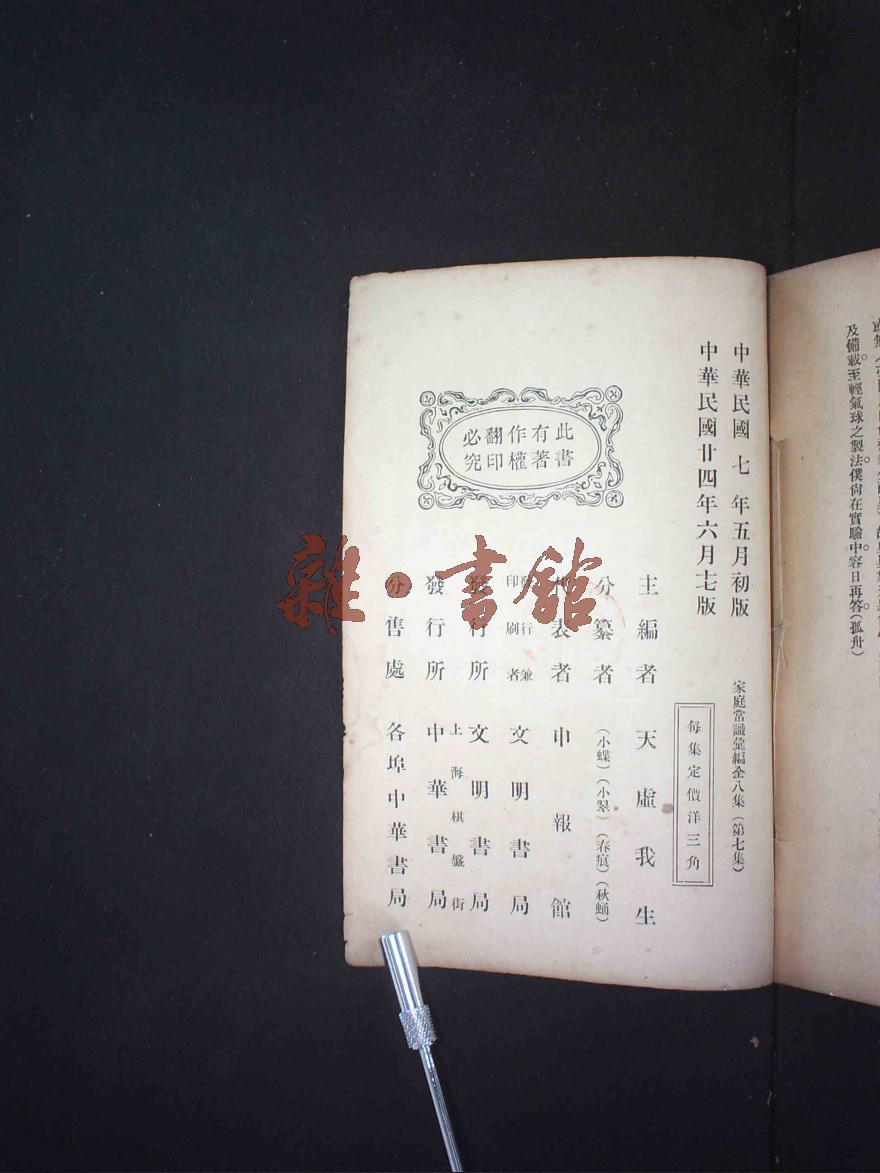 及備載至輕氣球之製法僕尙在實驗中容日再答(孤舟)
中華民國七年五月初版
中華民國廿四年六月七版
家庭常識彙編全八集(第七集)
每集定價洋三角
主編者 天虛我生
分纂者 (小蝶)(小翠)(春痕)(秋蛹)
表者 申報館
發行兼印刷者 文明書局
發行所 文明書局
上海棋盤街
發行所 中華書局
分售處 各埠中華書局
此書有著作權翻印必究
雜·書館